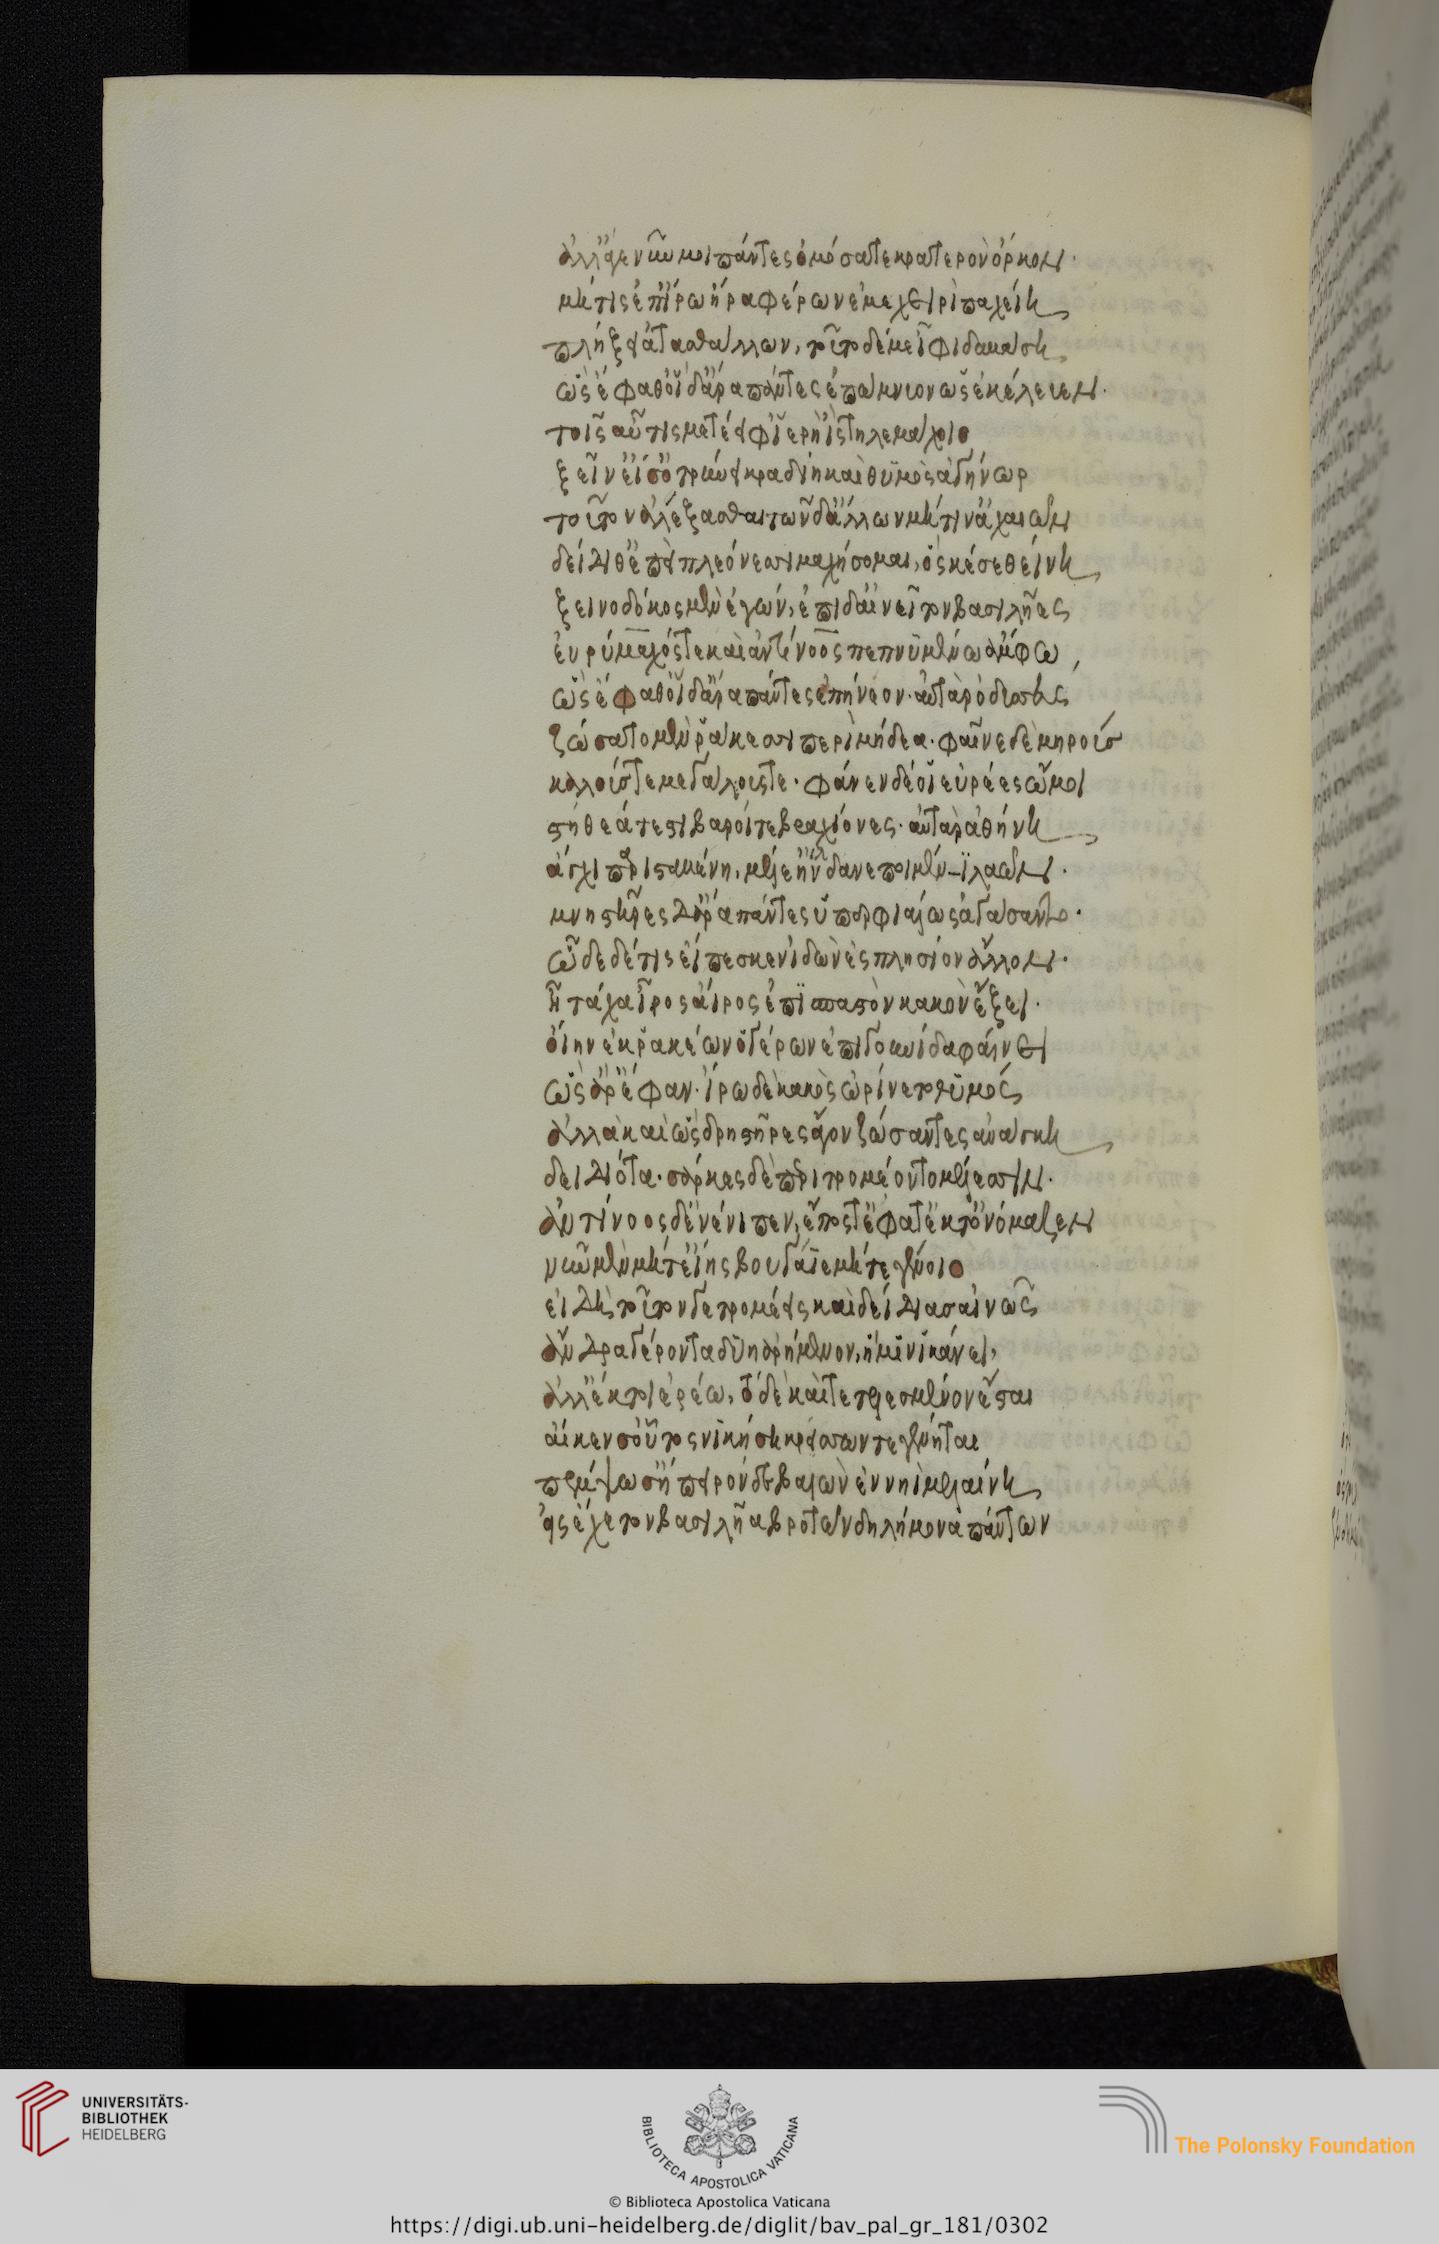 ἀλλ' ἄγε νῦν μοι πάντες ὀμόσατε κρατερὸν ὅρκον·
μήτις ἐπ' ἴρω ἦρα φέρων ἐμὲ χειρὶ παχείῃ
πλήξει ἀτασθάλλων, τούτω δέ με ἶφι δαμάσῃ
ὣς ἔφαθ' οἱ δ' ἄρα πάντες ἐπώμνυον ὡς ἐκέλευεν·
τοῖς αὖτις μετέειφ' ἱερὴ ἲς τηλεμάχοιο
ξεῖν' εἴ σ' ὀτρύνει κραδίη καὶ θυμὸς ἀγήνωρ
τοῦτον ἀλέξασθαι τῶν δ' ἄλλων μήτιν' ἀχαιῶν
δείδιθ' ἐπεὶ πλεόνεσσι μαχήσομαι, ὅς κέ σε θείνῃ
ξεινοδόκος μὲν ἐγών, ἐπὶ δ' αἰνεῖτον βασιλῆες
εὐρύμαχός τε καὶ ἀντίνοος πεπνυμένω ἄμφω,
ὣς ἔφαθ' οἱ δ' ἄρα πάντες ἐπήνεον· αὐτὰρ ὀδυσσεὺς
ζώσατο μὲν ῥάκεσι περὶ μήδεα· φαῖνε δὲ μηροὺς
καλούς τε μεγάλους τε· φάνεν δέ οἱ εὐρέες ὦμοι
στήθεά τε στιβαροί τε βραχίονες· αὐτὰρ ἀθήνη
ἄγχι παρισταμένη, μέλε' ἤλδανε ποιμένι λαῶν·
μνηστῆρες δ' ἄρα πάντες ὑπερφιάλως ἀγάσαντο·
ὧδε δέ τις εἴπεσκεν ἰδὼν ἐς πλησίον ἄλλον·
ἦ τάχα ἶρος ἄϊρος ἐπίσπαστον κακὸν ἕξει·
οἵην ἐκ ῥακέων ὁ γέρων ἐπιγουνίδα φαίνει
ὣς ἄρ' ἔφαν· ἴρω δὲ κακῶς ὠρίνετο θυμός
ἀλλὰ καὶ ὣς δρηστῆρες ἄγον ζώσαντες ἀνάγκῃ
δειδιότα· σάρκες δὲ περιτρομέοντο μέλεσσιν·
ἀντίνοος δ' ἐνένιπεν, ἔπος τ' ἔφατ' ἔκ τ' ὀνόμαζεν
νῦν μὲν μήτ' εἴης βουγάϊε μήτε γένοιο
εἰ δὴ τοῦτόν γε τρομέεις καὶ δείδιας αἰνῶς
ἄνδρα γέροντα δύη ἀρημένον, ἥ μιν ἱκάνει,
ἀλλ' ἔκ τοι ἐρέω, τὸ δὲ καὶ τετελεσμένον ἔσται
αἴ κέν σ' οὗτος νικήσῃ κρείσσων τε γένηται
πέμψω σ' ἤπειρόν δε βαλὼν ἐν νηῒ μελαίνῃ
εἰς ἔχετον βασιλῆα βροτῶν δηλήμονα πάντων
UNIVERSITÄTS-
BIBLIOTHEK
HEIDELBERG
BIBLIOTECA APOSTOLICA VATICANA
The Polonsky Foundation
© Biblioteca Apostolica Vaticana
https://digi.ub.uni-heidelberg.de/diglit/bav_pal_gr_181/0302